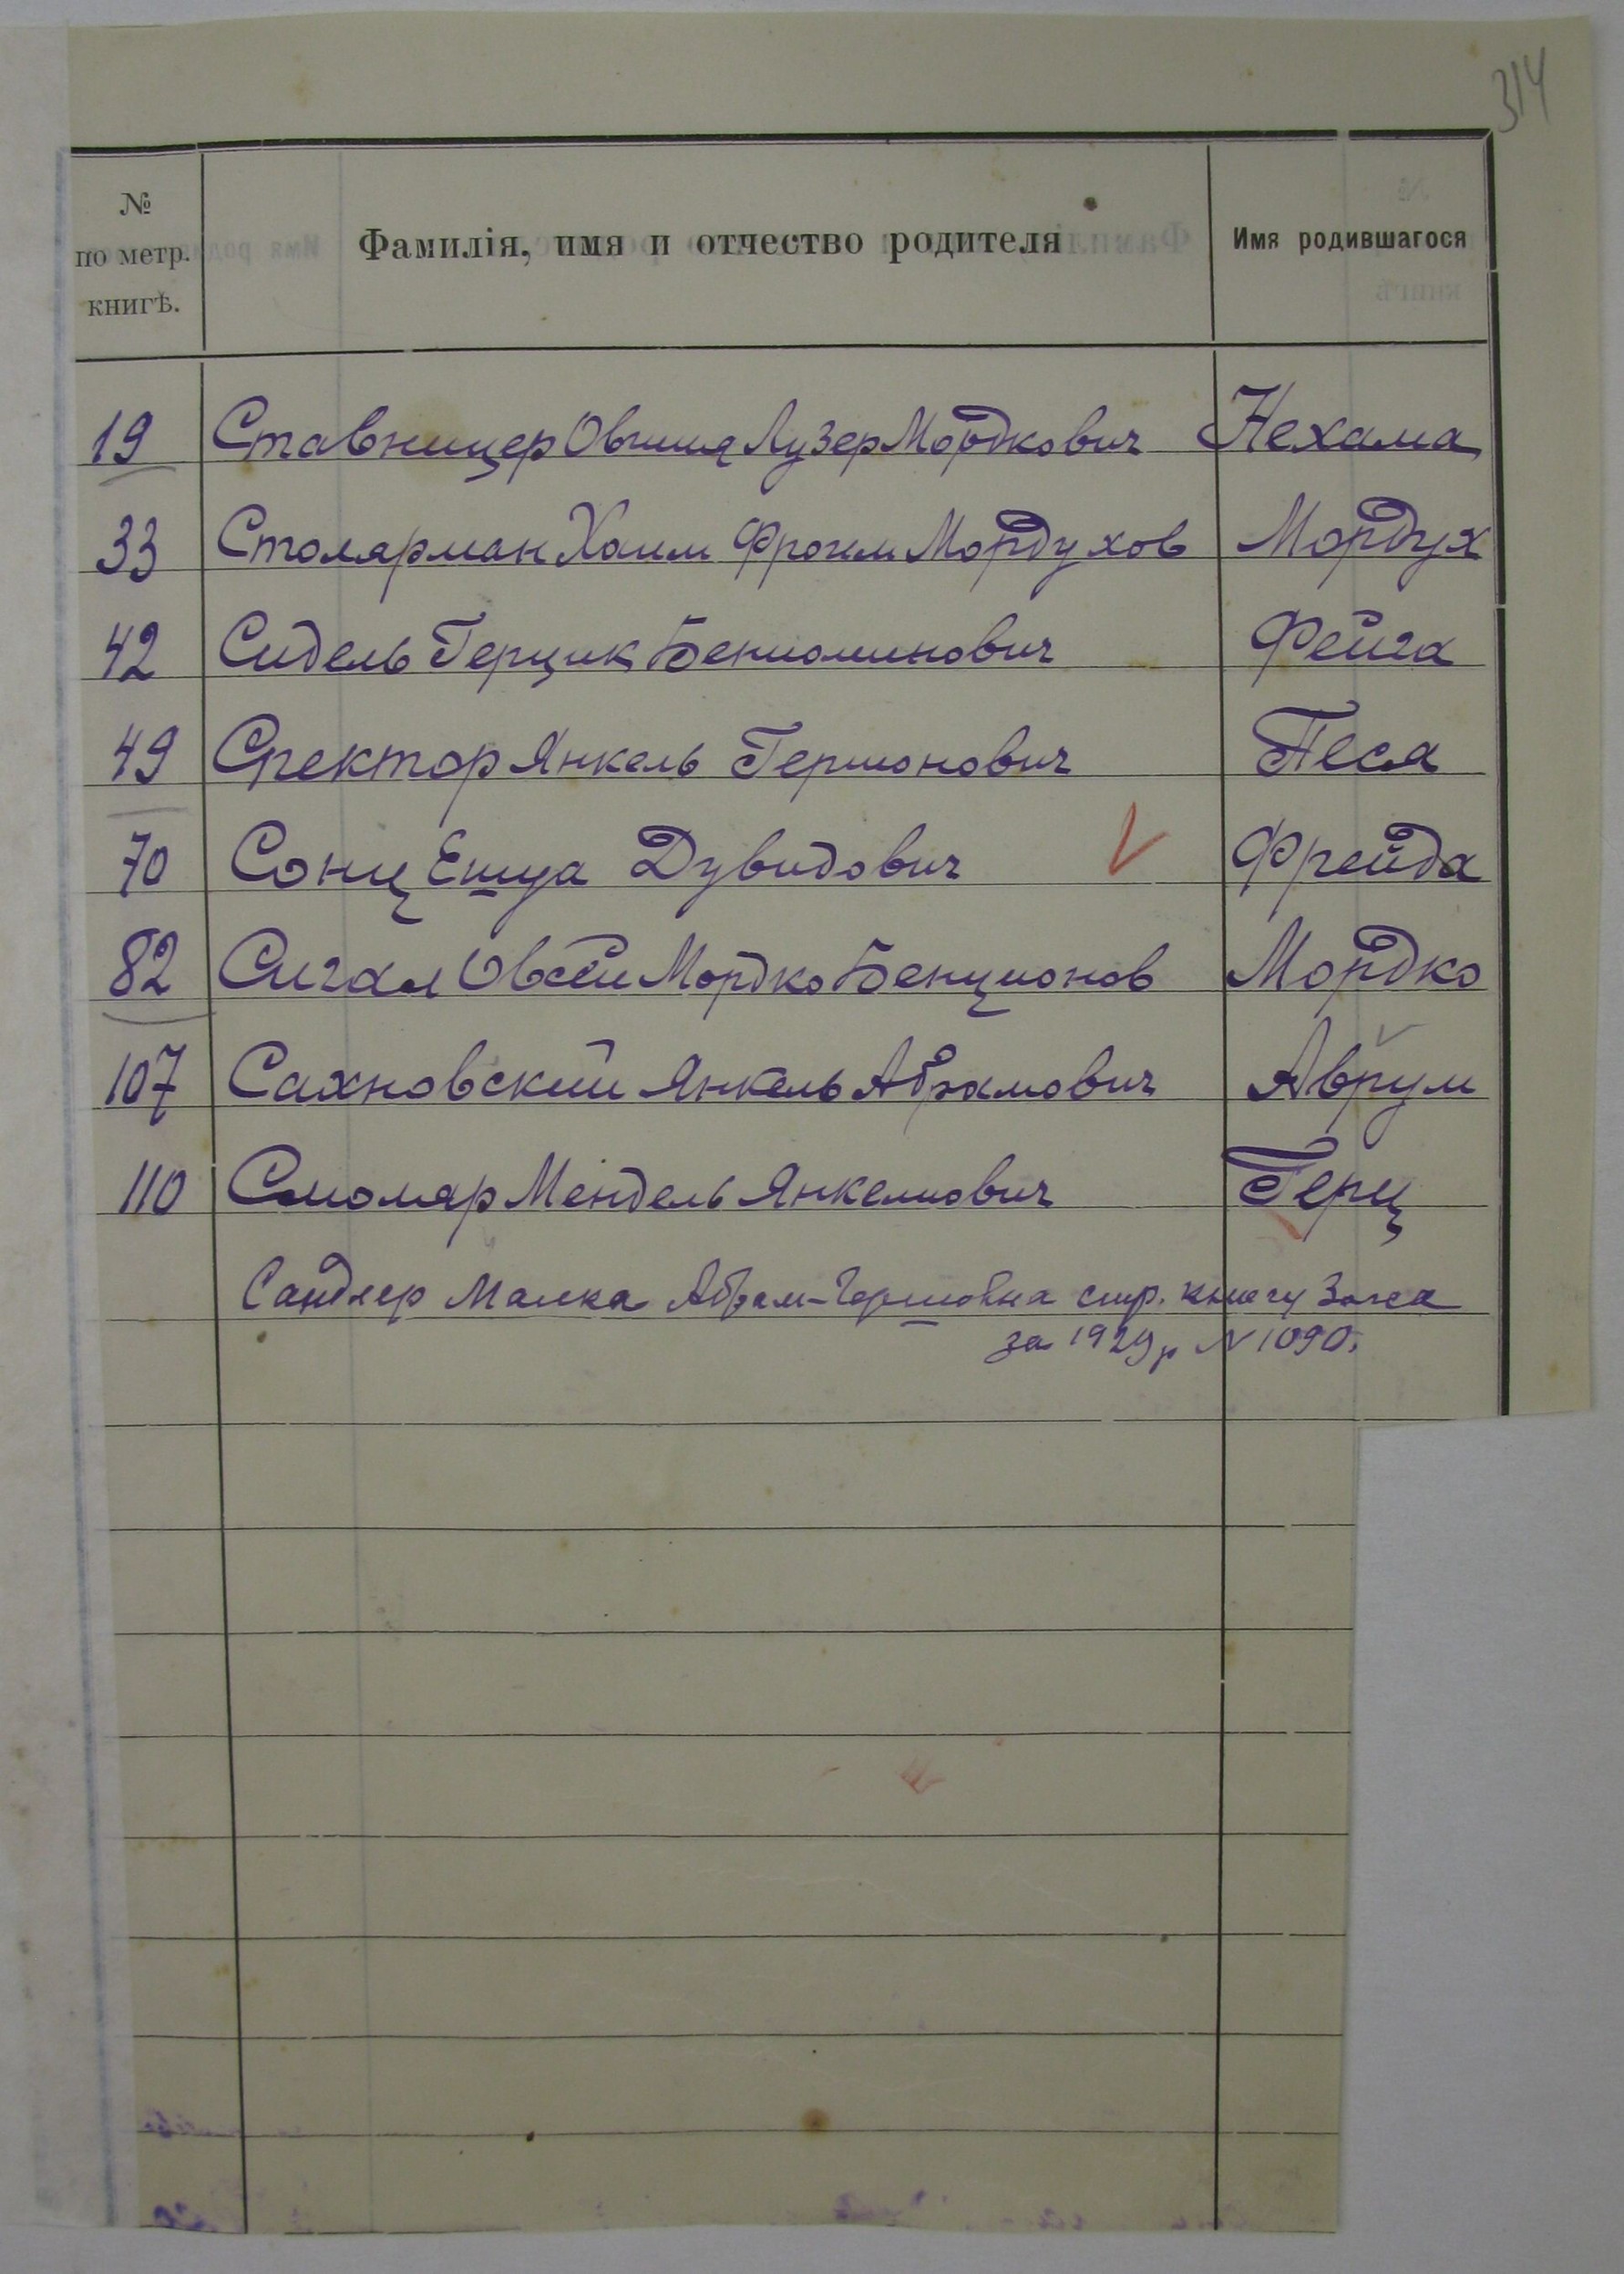 314
№ по метр. книгѣ. Фамилія, имя и отчество родителя Имя родившагося
19 Ставницер Овшия Лузер Мордкович Нехама
33 Столярман Хаим Фроим Мордухов Мордух
42 Сидель Герцик Бениоминович Фейга
49 Спектор Янкель Гершонович Песя
70 Сонц Ешуа Дувидович Фрейда
82 Сигал Овсей Мордко Бенционов Мордко
107 Сахновский Янкель Абрамович Аврум
110 Смоляр Мендель Янкелиович Герц
Сандлер Малка Абрам-Гершовна смр. книгу Загса
за 1929 г N 1090.